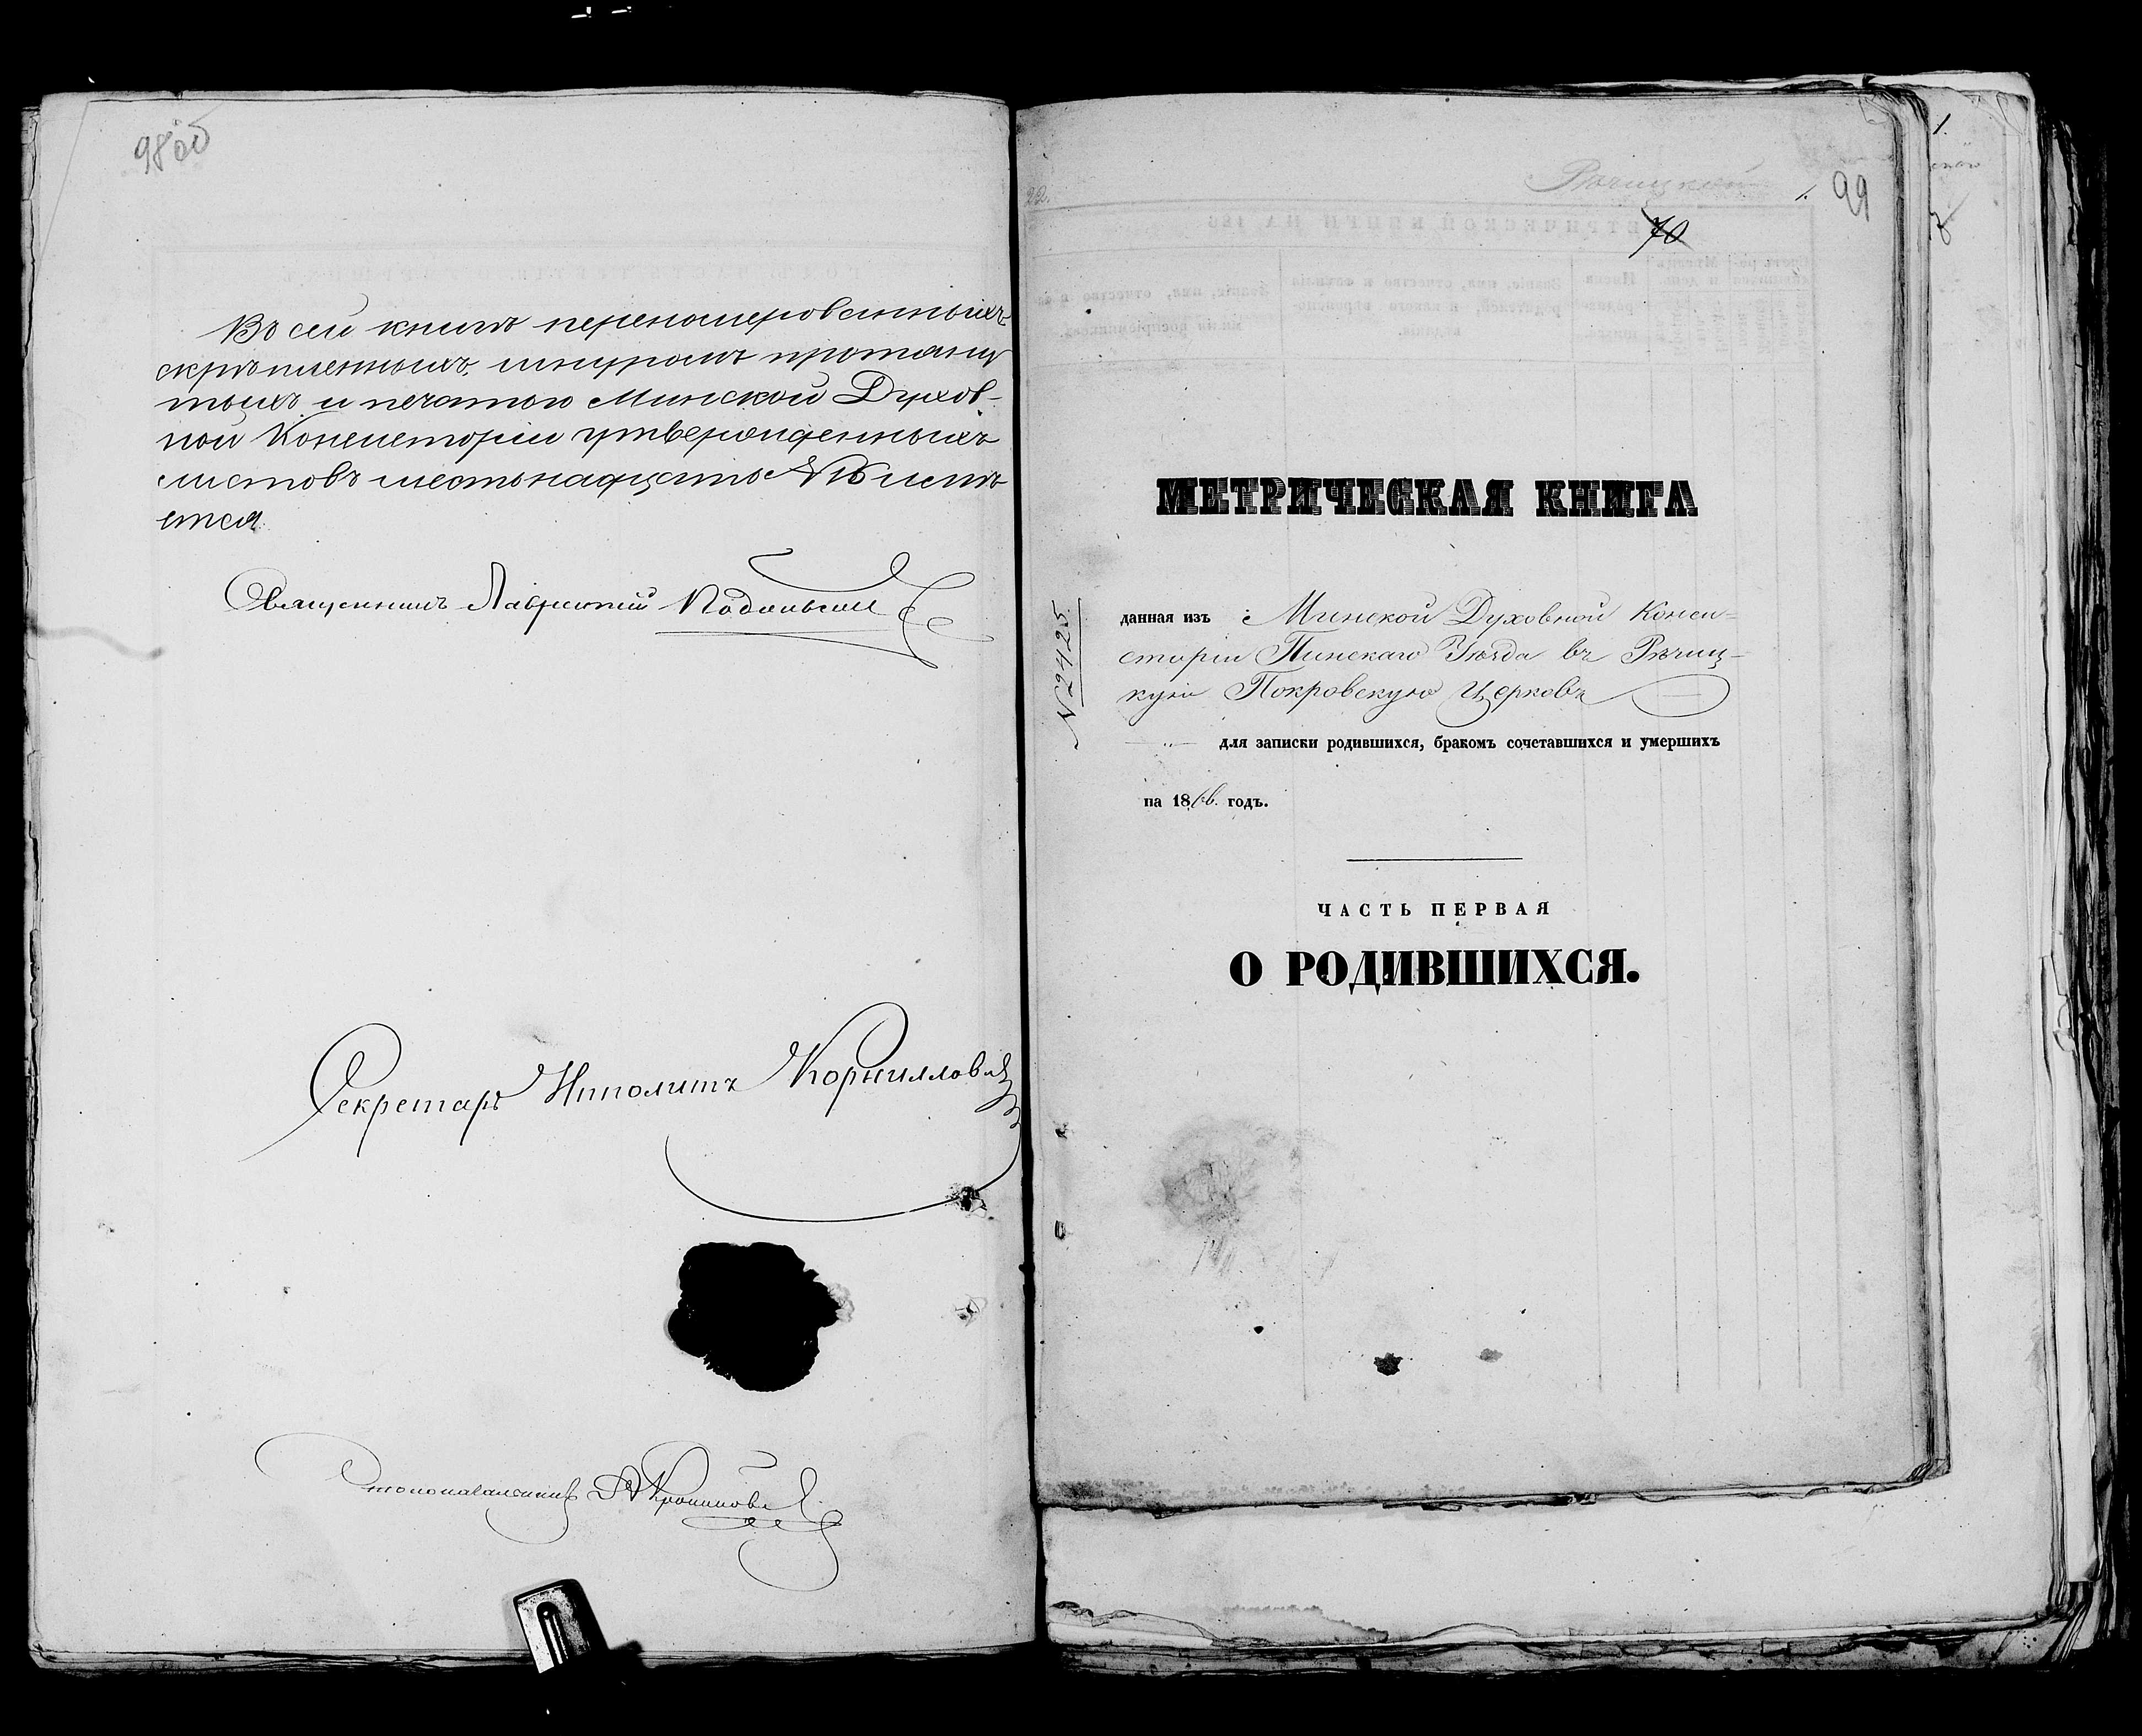 98 об
Въ сей книгѣ перенумерованныхъ
скрѣпленныхъ, шнуромъ протяну
тыхъ и печатью Минской Духов-
ной Консисторіи утвержденныхъ
листовъ шестьнадцать № 16 имѣ
ется
Священникъ Лаврентій
Секретарь Ипполитъ Корниллов
Столоначальникъ
Рѣчицкой
1.
99
70
МЕТРИЧЕСКАЯ КНИГА
№ 2425
данная изъ Минской Духовной Конси-
сторіи Пинскаго Уѣзда въ Рѣчиц-
кую Покровскую Церковь
для записки родившихся, бракомъ сочетавшихся и умершихъ
на 1866. годъ.
ЧАСТЬ ПЕРВАЯ
О РОДИВШИХСЯ.